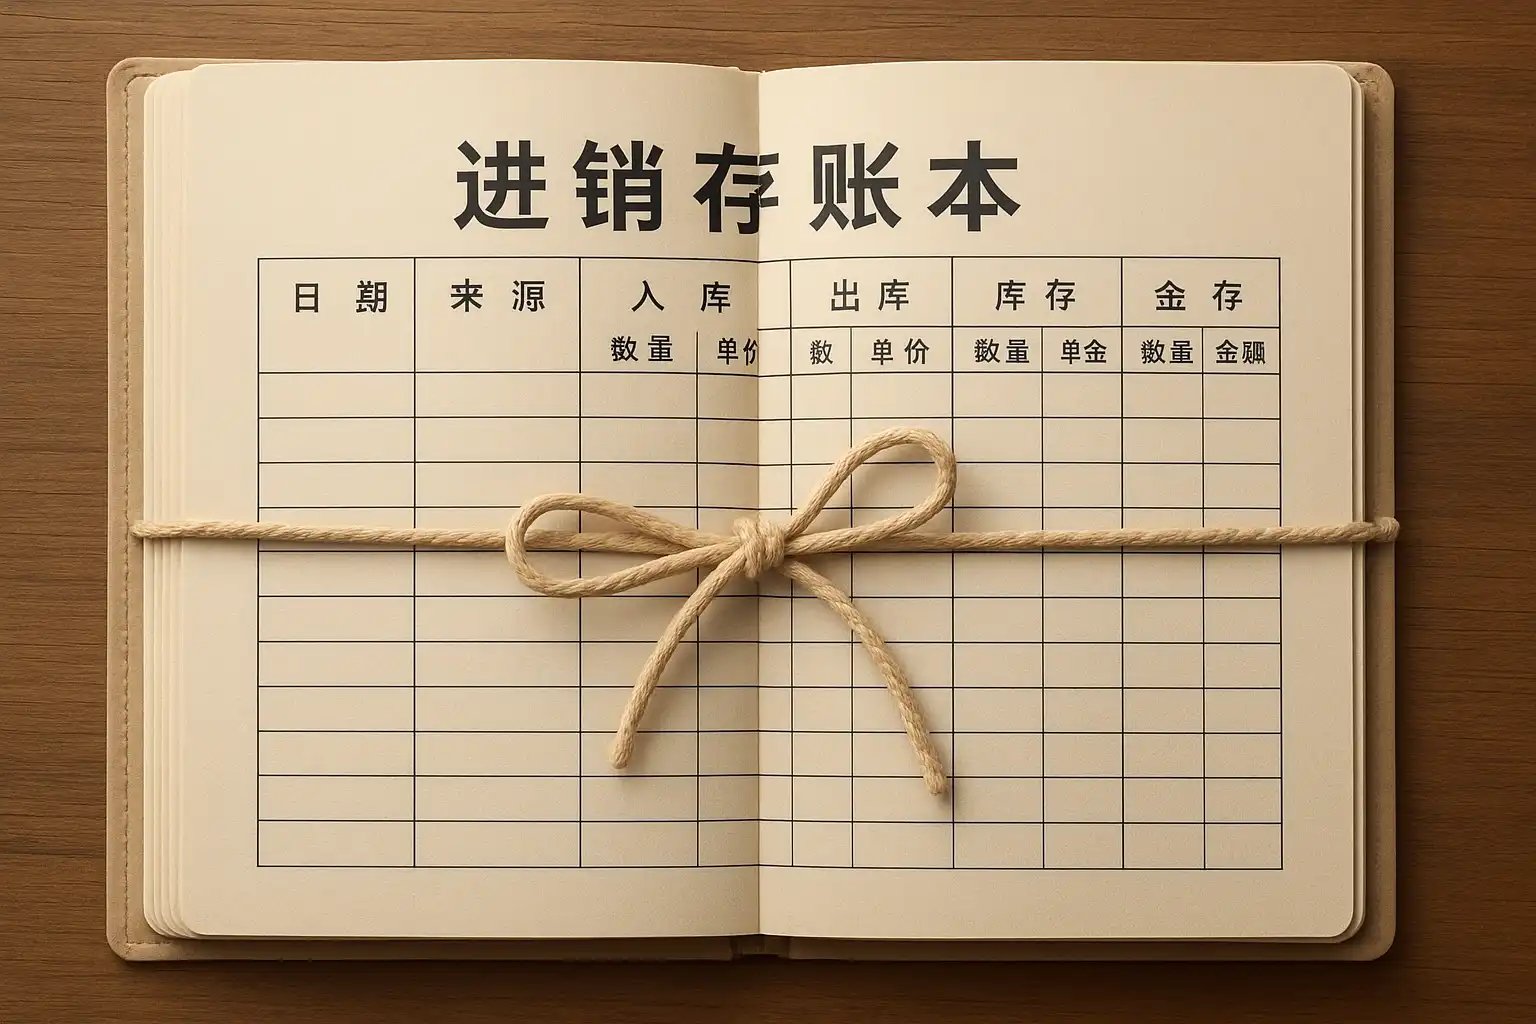 进销存账本
日期 来源 入库 出库 库存 金存
数量 单价 数 单价 数量 单金 数量 金